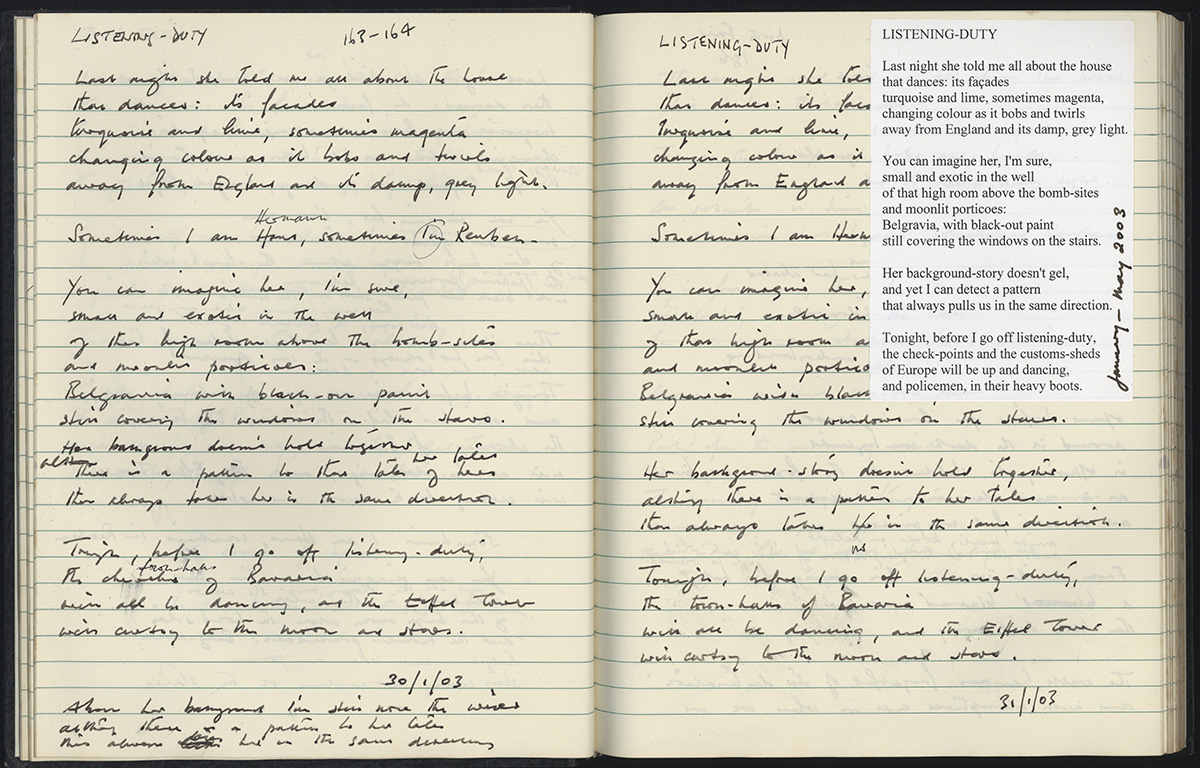 LISTENING-DUTY 163-164
Last night she told me all about the house
that dances: its facades
turquoise and lime, sometimes magenta
changing colour as it bobs and twirls
away from England and its damp, grey light.
Hermann
Sometimes I am Hans, sometimes Reuben.
You can imagine her, I'm sure,
small and exotic in the well
of that high room above the bomb-sites
and moonlit porticoes:
Belgravia with black-out paint
still covering the windows on the stairs.
Her background doesn't hold together
her tales
There is a pattern to these tales of hers
that always her in the same direction.
Tonight, before I go off listening-duty,
town-halls
the of Bavaria
will all be dancing, and the Eiffel Tower
will curtsy to the moon and stars.
30/1/03
her background I'm still none the wiser
although there is a pattern to her tales
this always her in the same direction
LISTENING-DUTY
Last night she
that dances: its
turquoise and lime,
changing colour as it
away from England
Sometimes I am
You can imagine her,
small and exotic in
of that high room
and moonlit
Belgravia with
still covering the windows on the stairs.
Her background-story doesn't hold together,
although there is a pattern to her tales
that always takes in the same direction.
us
Tonight, before I go off listening-duty,
the town-halls of Bavaria
will all be dancing, and the Eiffel Tower
will curtsy to the moon and stars.
31/1/03
LISTENING-DUTY
Last night she told me all about the house
that dances: its façades
turquoise and lime, sometimes magenta,
changing colour as it bobs and twirls
away from England and its damp, grey light.
You can imagine her, I'm sure,
small and exotic in the well
of that high room above the bomb-sites
and moonlit porticoes:
Belgravia, with black-out paint
still covering the windows on the stairs.
Her background-story doesn't gel,
and yet I can detect a pattern
that always pulls us in the same direction.
Tonight, before I go off listening-duty,
the check-points and the customs-sheds
of Europe will be up and dancing,
and policemen, in their heavy boots.
January - May 2003